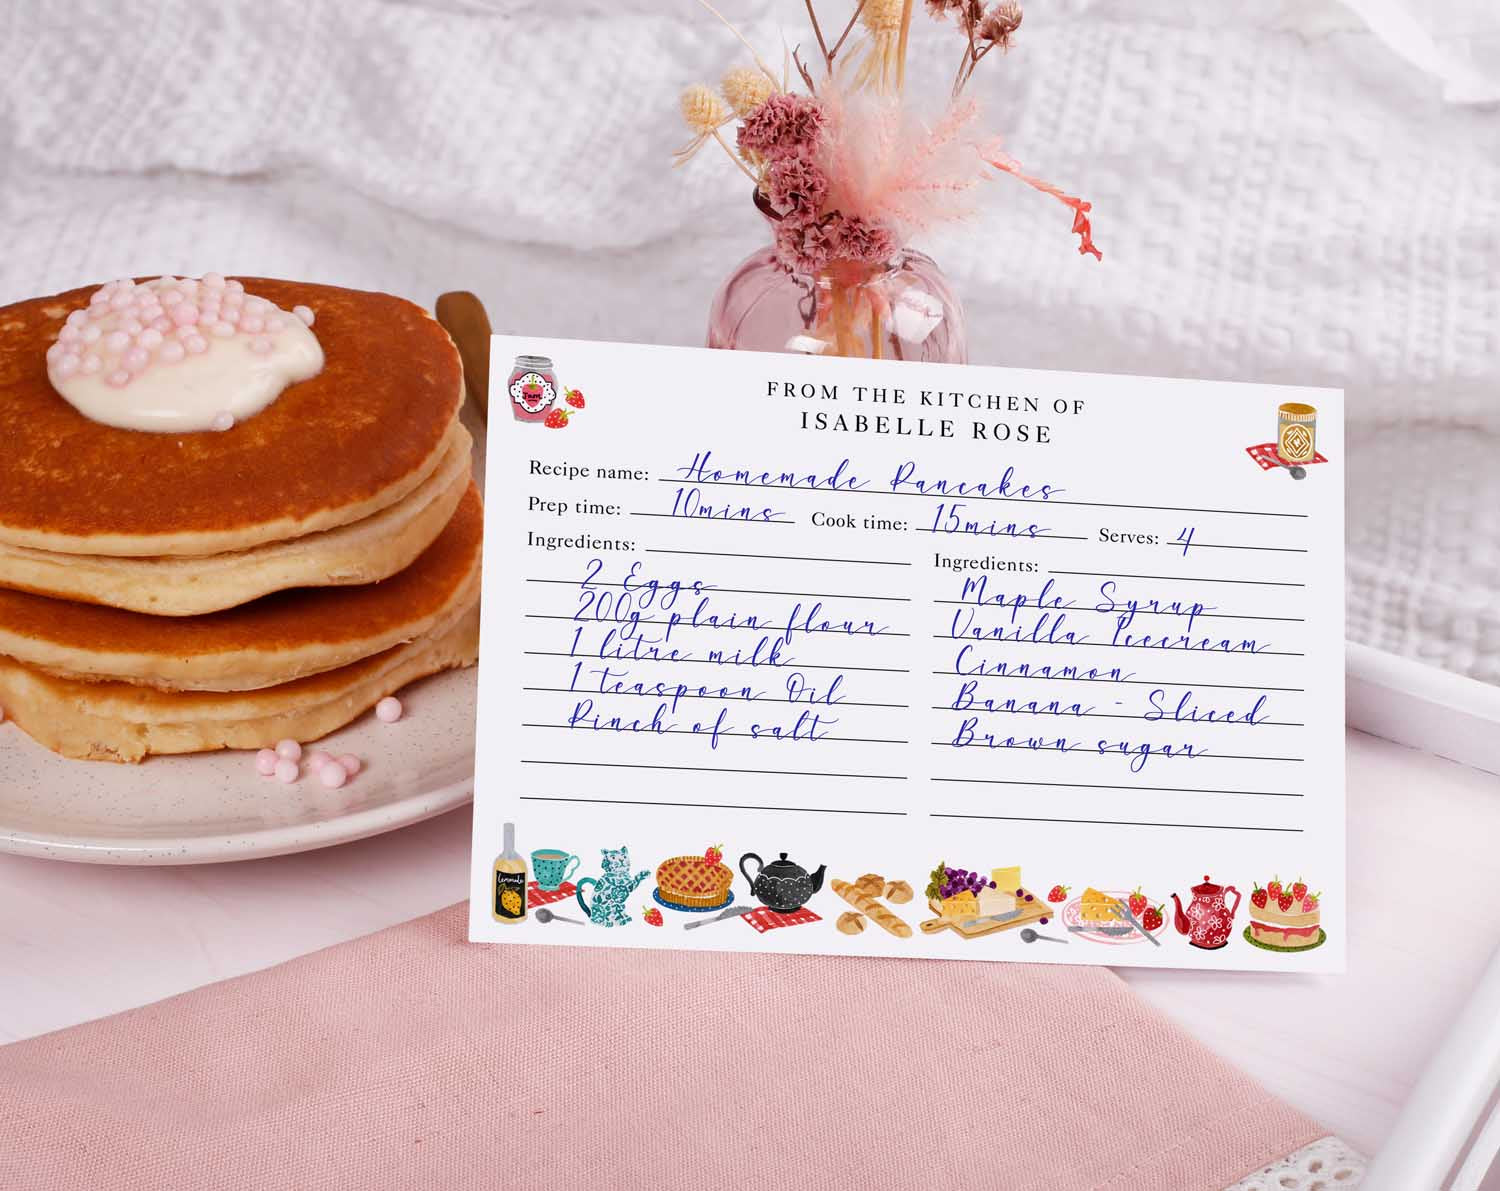 FROM THE KITCHEN OF
ISABELLE ROSE
Recipe name: Homemade Pancakes
Prep time: 10mins Cook time: 15mins Serves: 4
Ingredients:
2 Eggs
200g plain flour
1 litre milk
1 teaspoon Oil
Pinch of salt
Ingredients:
Maple Syrup
Vanilla Icecream
Cinnamon
Banana - Sliced
Brown sugar
Jam
Lemonade